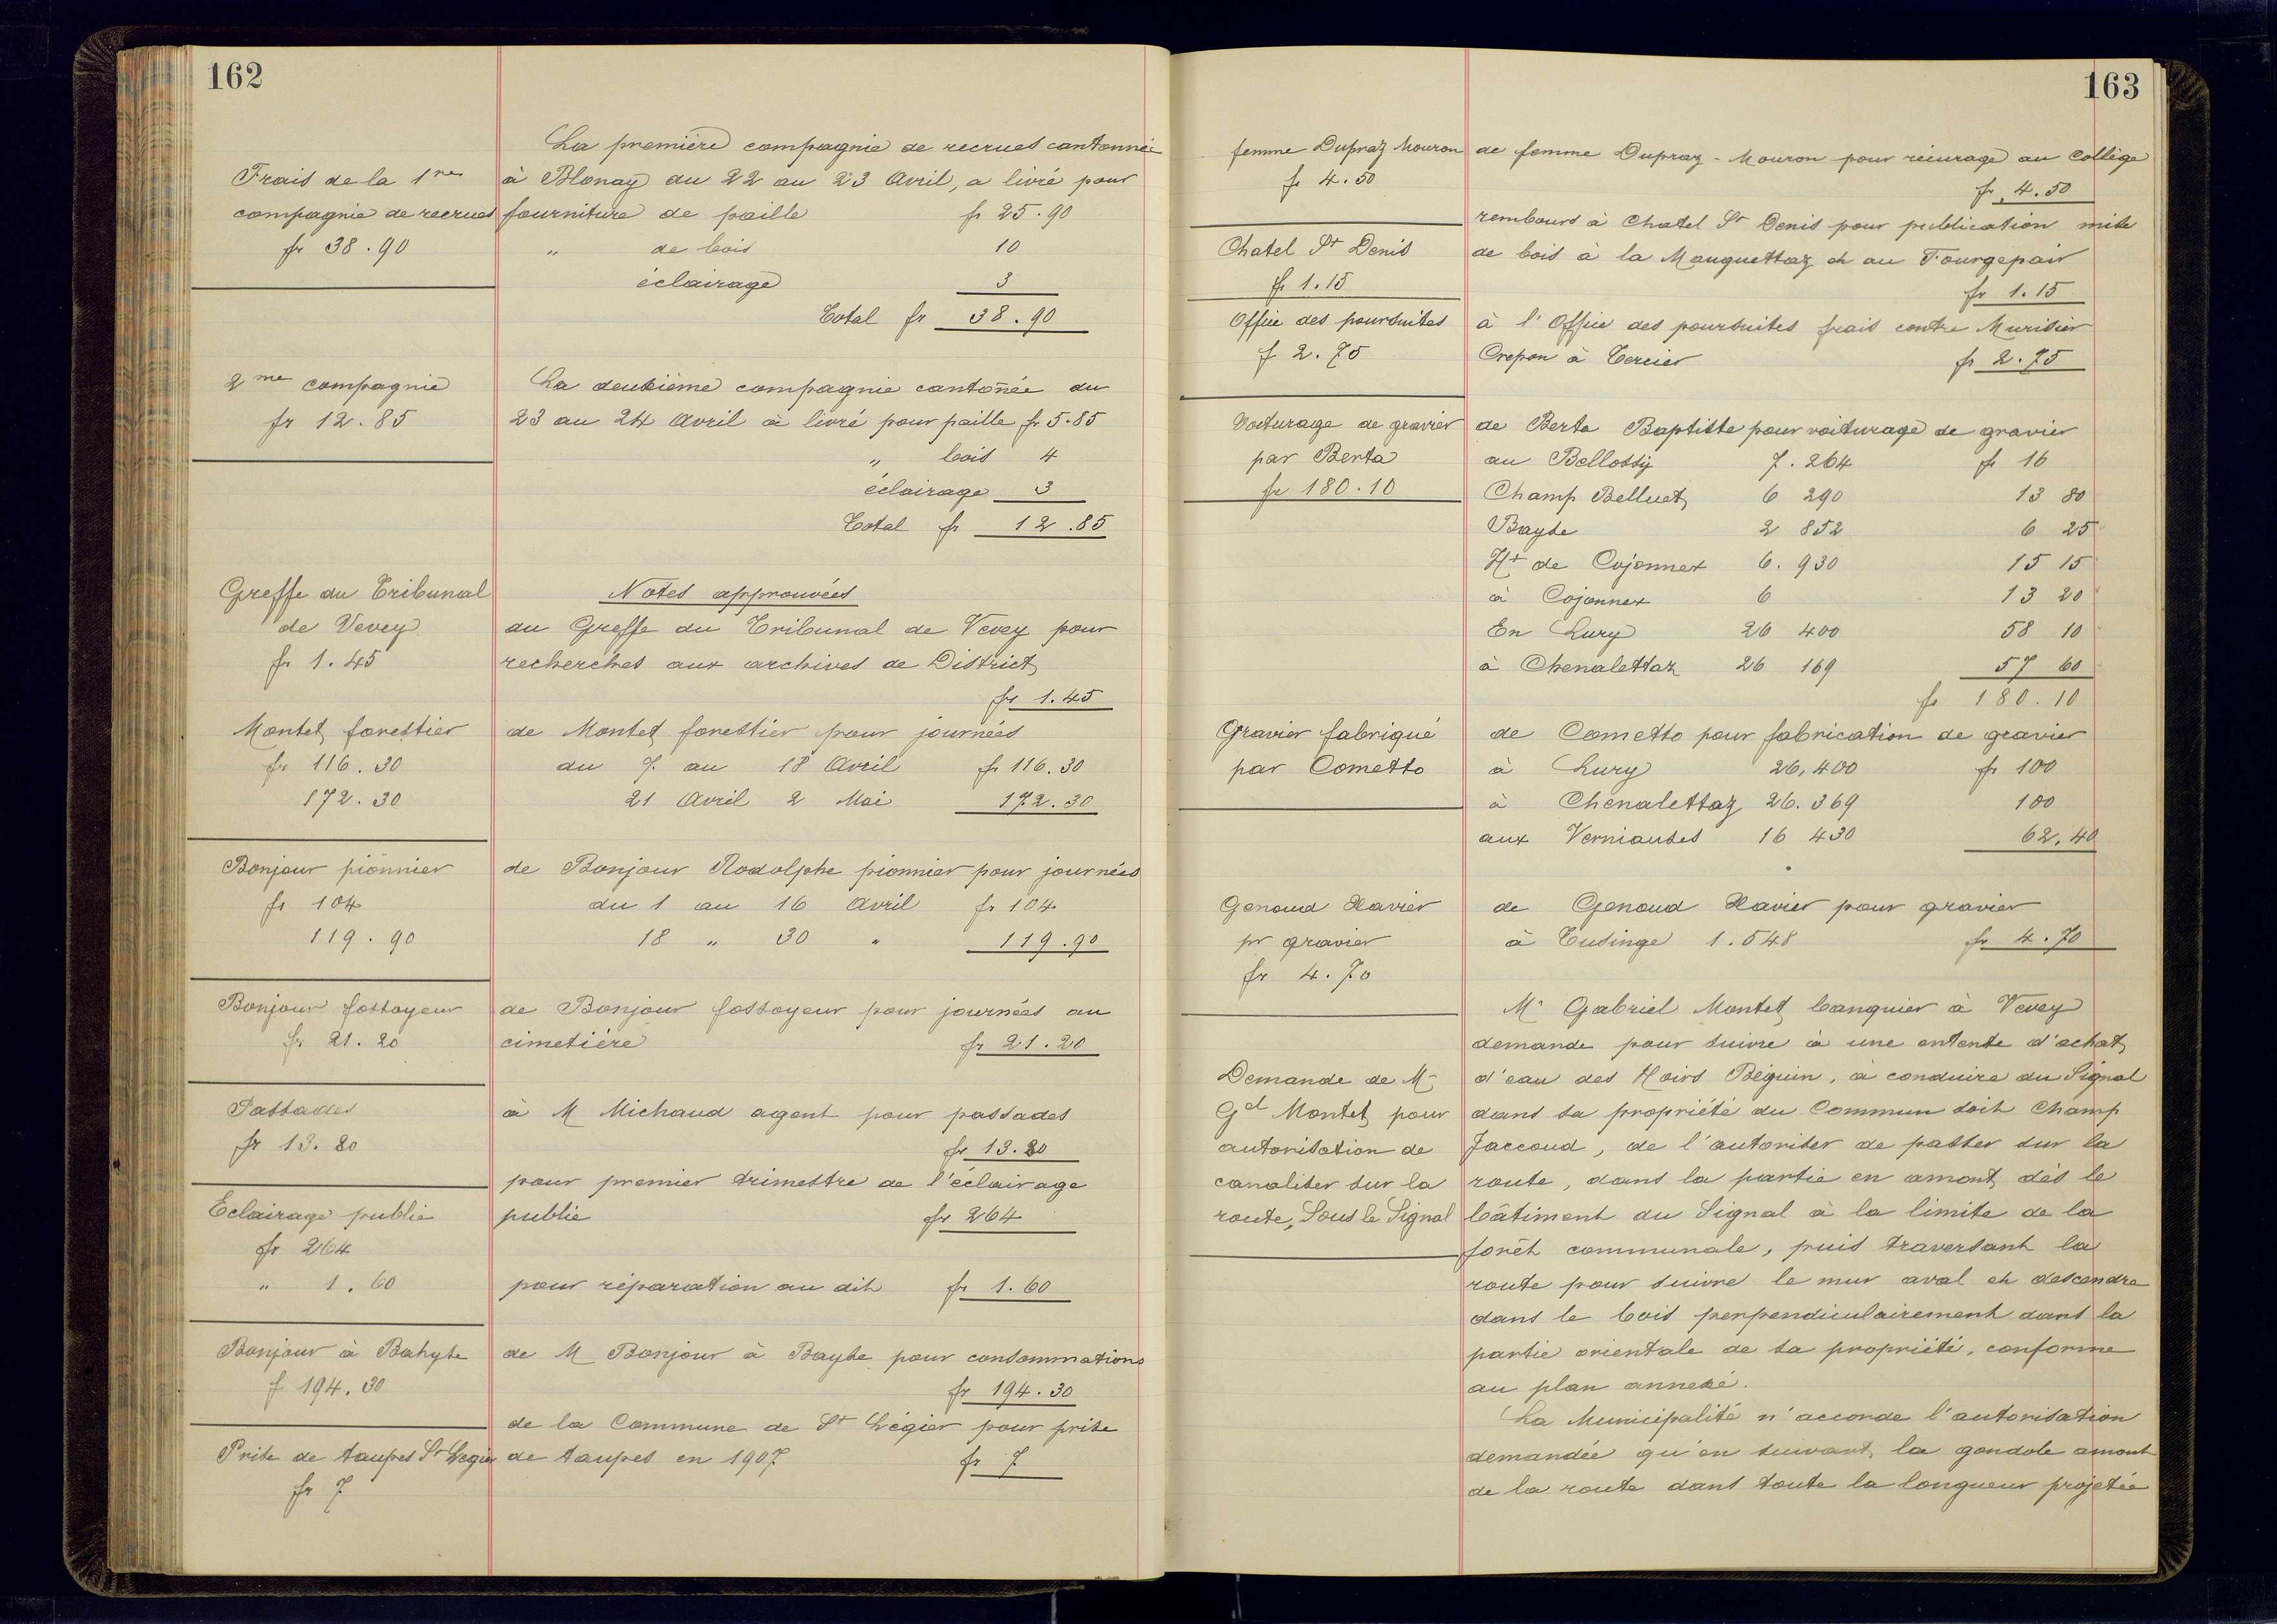 162
La première compagnie de recrues cantonnée
Frais de la 1re
à Blonay du 22 au 23 Avril, a livré pour
compagnie de recrues
fourniture de paille fr 25.90
fr 38.90
" de bois 10
éclairage 3
Total fr 38.90
2me compagnie
La deuxième compagnie cantonnée du
fr 12.85
23 au 24 Avril à livré pour paille fr 5.85
" bois 4
éclairage 3
Total fr 12.85
Greffe du Tribunal
Notes approuvées
de Vevey
du Greffe du Tribunal de Vevey pour
fr 1.45
recherches aux archives de District
fr 1.45
Montet forestier
de Montet forestier pour journées
fr 116.30
du 7. au 18 Avril fr 116.30
172.30
21 Avril 2 Mai 172.30
Bonjour pionnier
de Bonjour Rodolphe pionnier pour journées
fr 104
du 1 au 16 Avril fr 104
119.90
18 " 30 " 119.90
Bonjour fossoyeur
de Bonjour fossoyeur pour journées au
fr 21.20
cimetière fr 21.20
Passades
à M Michaud agent pour passades
fr 13.80
fr 13.80
pour premier trimestre de l'éclairage
Eclairage public
public fr 264
fr 264
" 1.60
pour réparation au dit fr 1.60
Bonjour à Bahyse
de M Bonjour à Bayse pour consommations
f 194.30
fr 194.30
de la Commune de St Légier pour prise
Prise de taupes St Legier
de taupes en 1907 fr 7
fr 7
163
femme Dupraz Mouron
de femme Dupraz-Mouron pour récurage au Collège
fr 4.50
fr 4.50
rembours à Chatel St Denis pour publication mise
Chatel St Denis
de bois à la Mouguettaz et au Fourgepair
fr 1.15
fr 1.15
Office des poursuites
à l'Office des poursuites frais contre Murisier
f 2.75
Crepon à Tercier fr 2.75
Voiturage de gravier
de Berta Baptiste pour voiturage de gravier
par Berta
au Bellossy 7.264 fr 16
fr 180.10
Champ Belluet 6 290 13 80
Bayse 2 852 6 25
Ht de Cojonnex 6.930 15 15
à Cojonnex 6 13 20
En Lury 26 400 58 10
à Chenalettaz 26 169 57 60
fr 180.10
Gravier fabriqué
de Cometto pour fabrication de gravier
par Cometto
à Lury 26,400 fr 100
à Chenalettaz 26.369 100
aux Verniauses 16 430 62.40
Genoud Xavier
de Genoud Xavier pour gravier
pr gravier
à Tusinge 1.548 fr 4.70
fr 4.70
Mr Gabriel Montet banquier à Vevey
demande pour suivre à une entente d'achat
Demande de Mr
d'eau des Hoirs Béguin, à conduire du Signal
Gel Montet pour
dans sa propriété du Commun soit Champ
autorisation de
Jaccoud, de l'autoriser de passer sur la
canaliser sur la
route, dans la partie en amont dès le
route, Sous le Signal
bâtiment du Signal à la limite de la
forêt communale, puis traversant la
route pour suivre le mur aval et descendre
dans le bois perpendiculairement dans la
partie orientale de sa propriété, conforme
au plan annexé.
La Municipalité n'accorde l'autorisation
demandée qu'en suivant la gondole amont
de la route dans toute la longueur projetée